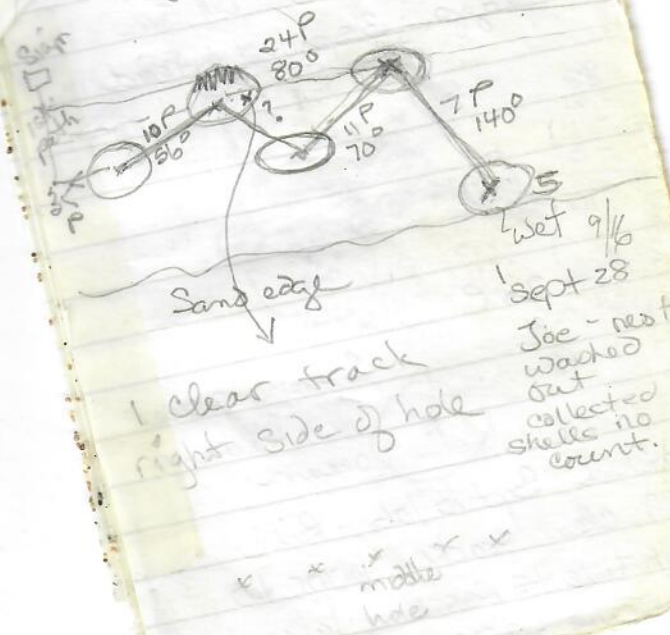 24P
80°
10P
56°
?
11P
70°
7P
140°
5
Wet 9/16
Sand edge
Sept 28
Joe - nest
washed
out
collected
shells no
count.
1 clear track
right side of hole
middle
hole
Sign